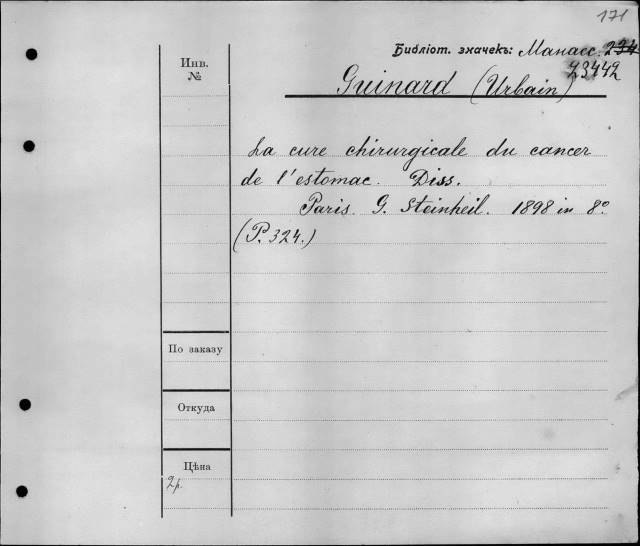 171
Библіот. значекъ: Манасс. 234
23442
Инв.
№
Guinard (Urbain)
La cure chirurgicale du cancer
de l'estomac. Diss.
Paris. G. Steinheil. 1898 in 8°.
(P. 324.)
По заказу
Откуда
Цѣна
2р.